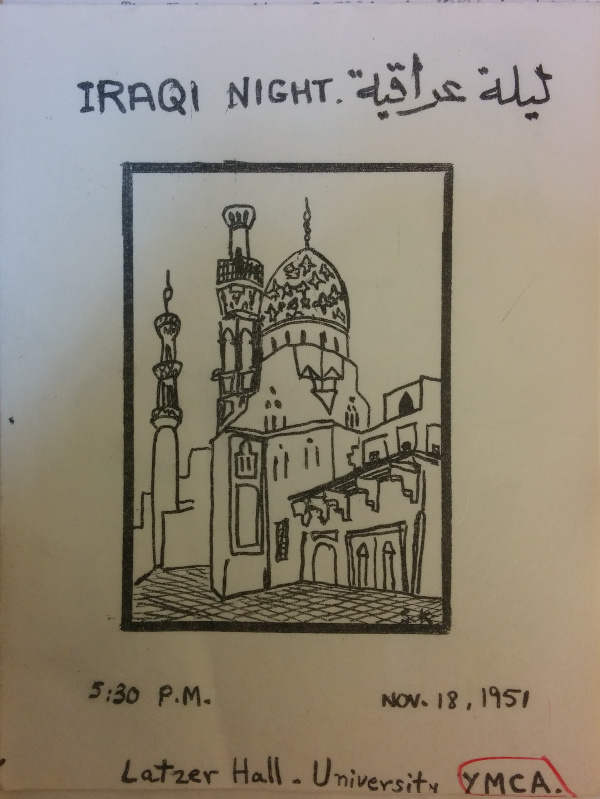 IRAQI NIGHT. ليلة عراقية
S K
5:30 P.M.
NOV. 18, 1951
Latzer Hall - University YMCA.